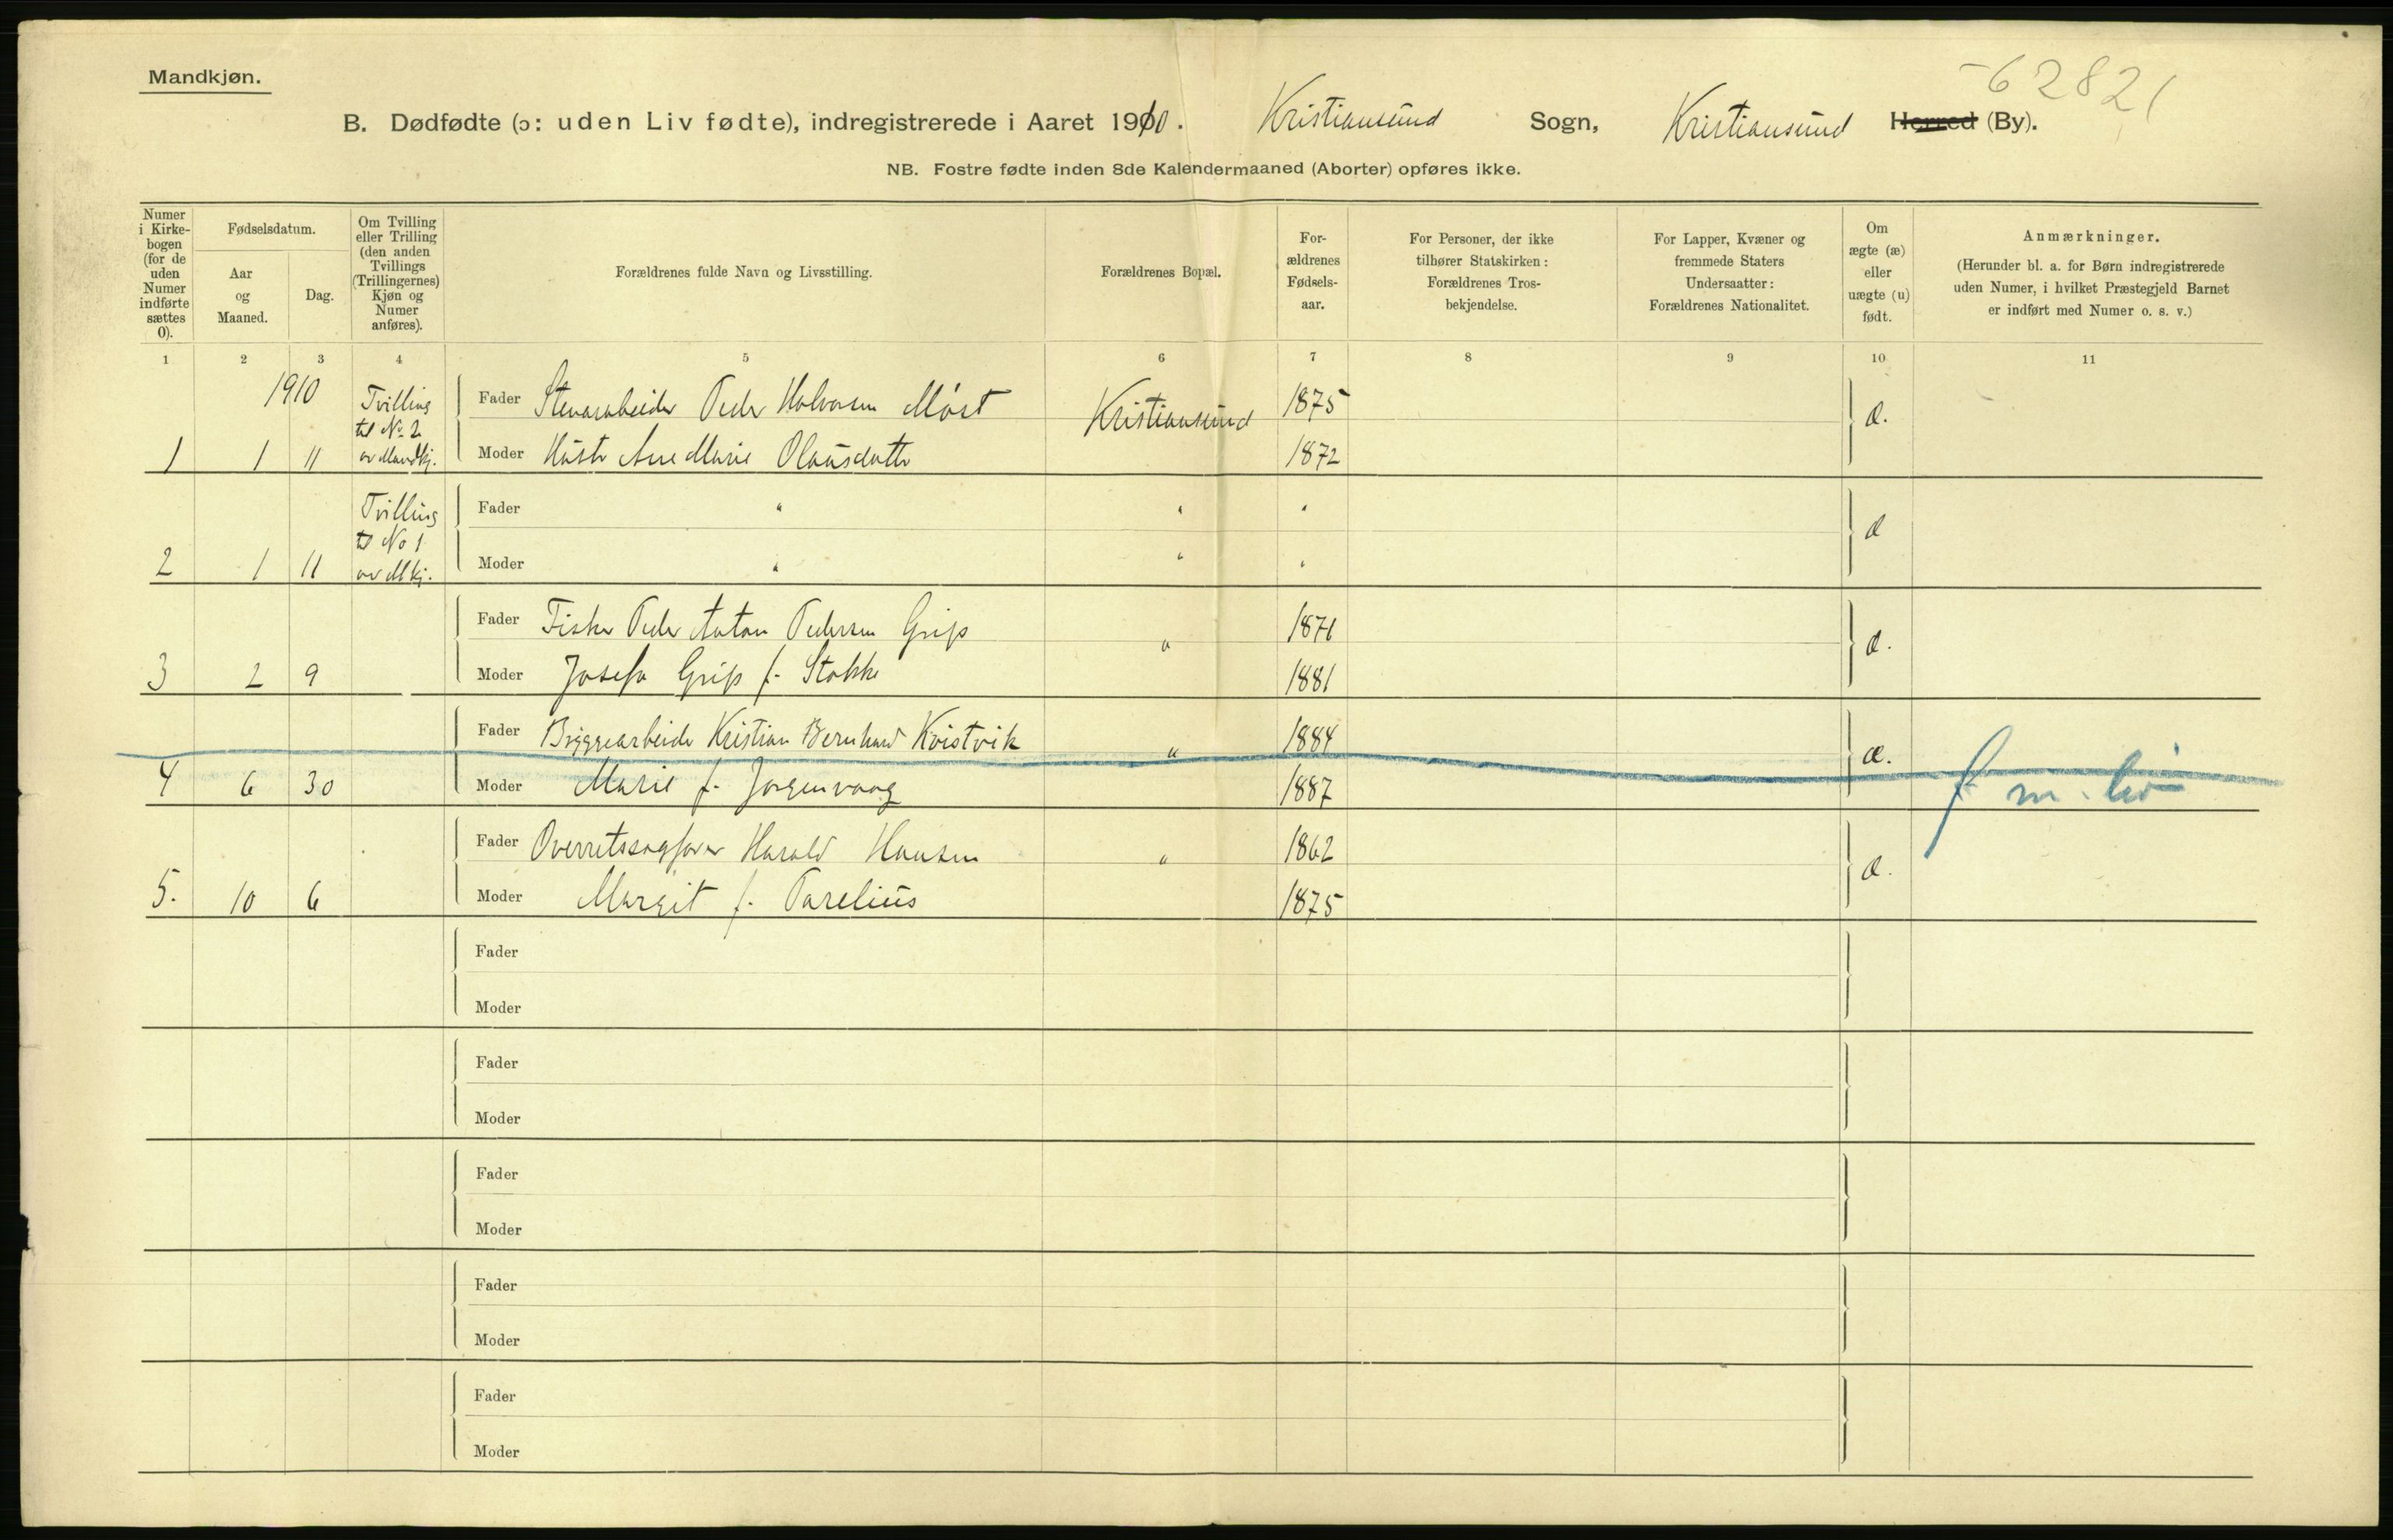 Mandkjøn.
62821
B. Dødfødte (ɔ: uden Liv fødte), indregistrerede i Aaret 1910. Kristiansund Sogn, Kristiansund Herred (By).
NB. Fostre fødte inden 8de Kalendermaaned (Aborter) opføres ikke.
Numer i Kirke- bogen (for de uden Numer indførte sættes 0).
Fødselsdatum.
Aar og Maaned.
Dag.
Om Tvilling eller Trilling (den anden Tvillings (Trillingernes) Kjøn og Numer anføres).
Forældrenes fulde Navn og Livsstilling.
Forældrenes Bopæl.
For- ældrenes Fødsels- aar.
For Personer, der ikke tilhører Statskirken: Forældrenes Tros- bekjendelse.
For Lapper, Kvæner og fremmede Staters Undersaatter: Forældrenes Nationalitet.
Om ægte (æ) eller uægte (u) født.
Anmærkninger.
(Herunder bl. a. for Børn indregistrerede uden Numer, i hvilket Præstegjeld Barnet er indført med Numer o. s. v.)
1 2 3 4 5 6 7 8 9 10 11
1910
Tvilling til No 2 av Mandkj.
Fader Stenarbeider Peder Halvorsen Møst Kristiansund 1875 æ.
1 1 11 Moder Hustr Ane Marie Olausdatter 1872
Tvilling til No 1 av Mkj.
Fader " " " æ
2 1 11 Moder " " "
Fader Fisker Peder Anton Pedersen Grip " 1871 æ.
3 2 9 Moder Josefa Grip f. Stokke 1881
Fader Bryggearbeider Kristian Bernhard Kvistvik " 1884 æ.
4 6 30 Moder Marie f. Jørgenvaag 1887 f. m. liv
Fader Overretssagfører Harald Hansen " 1862 æ.
5. 10 6 Moder Margit f. Parelius 1875
Fader
Moder
Fader
Moder
Fader
Moder
Fader
Moder
Fader
Moder